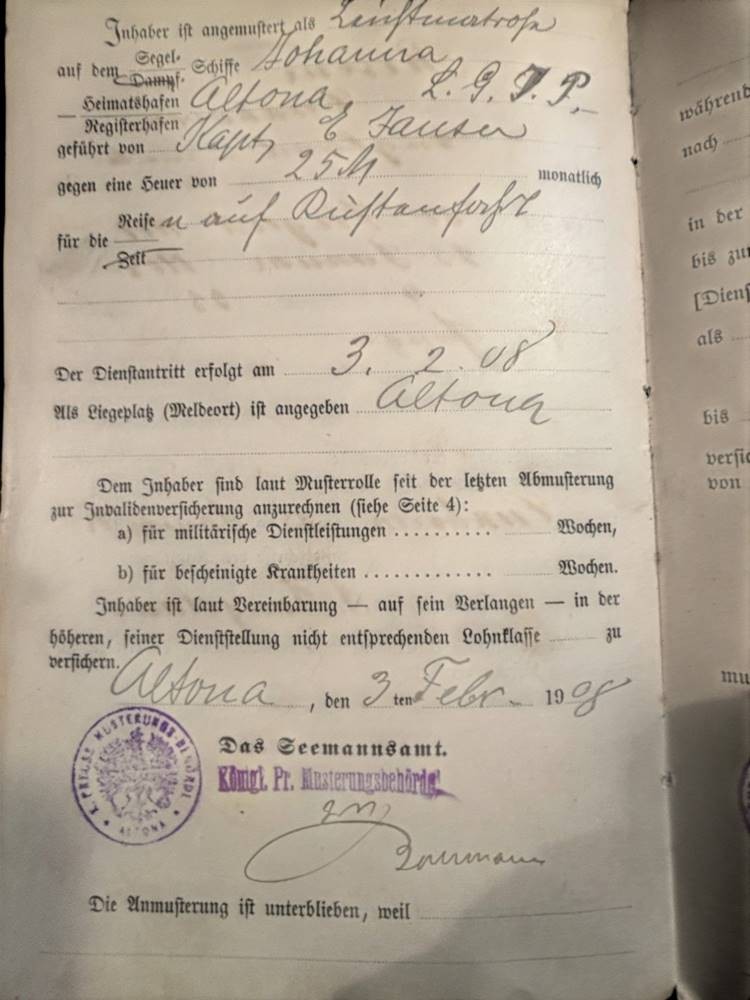 Inhaber ist angemustert als Leichtmatrose
auf dem Segel-/Dampf- Schiffe Johanna
Heimatshafen Altona, L. G. J. P.
Registerhafen
geführt von Kapt, E Jansen
gegen eine Heuer von 25 M monatlich
für die Reise/Zeit n auf Küstenfahrt
Der Dienstantritt erfolgt am 3. 2. 08
Als Liegeplatz (Meldeort) ist angegeben Altona
Dem Inhaber sind laut Musterrolle seit der letzten Abmusterung
zur Invalidenversicherung anzurechnen (siehe Seite 4):
a) für militärische Dienstleistungen .......... Wochen,
b) für bescheinigte Krankheiten ............. Wochen.
Inhaber ist laut Vereinbarung — auf sein Verlangen — in der
höheren, seiner Dienststellung nicht entsprechenden Lohnklasse zu
versichern.
Altona, den 3 ten Febr. 1908
Das Seemannsamt.
Königl. Pr. Musterungsbehörde.
K. PREUSS. MUSTERUNGS-BEHÖRDE
ALTONA
Die Anmusterung ist unterblieben, weil
während
nach
in der
bis zu
[Diens
als
bis
versic
von
mu